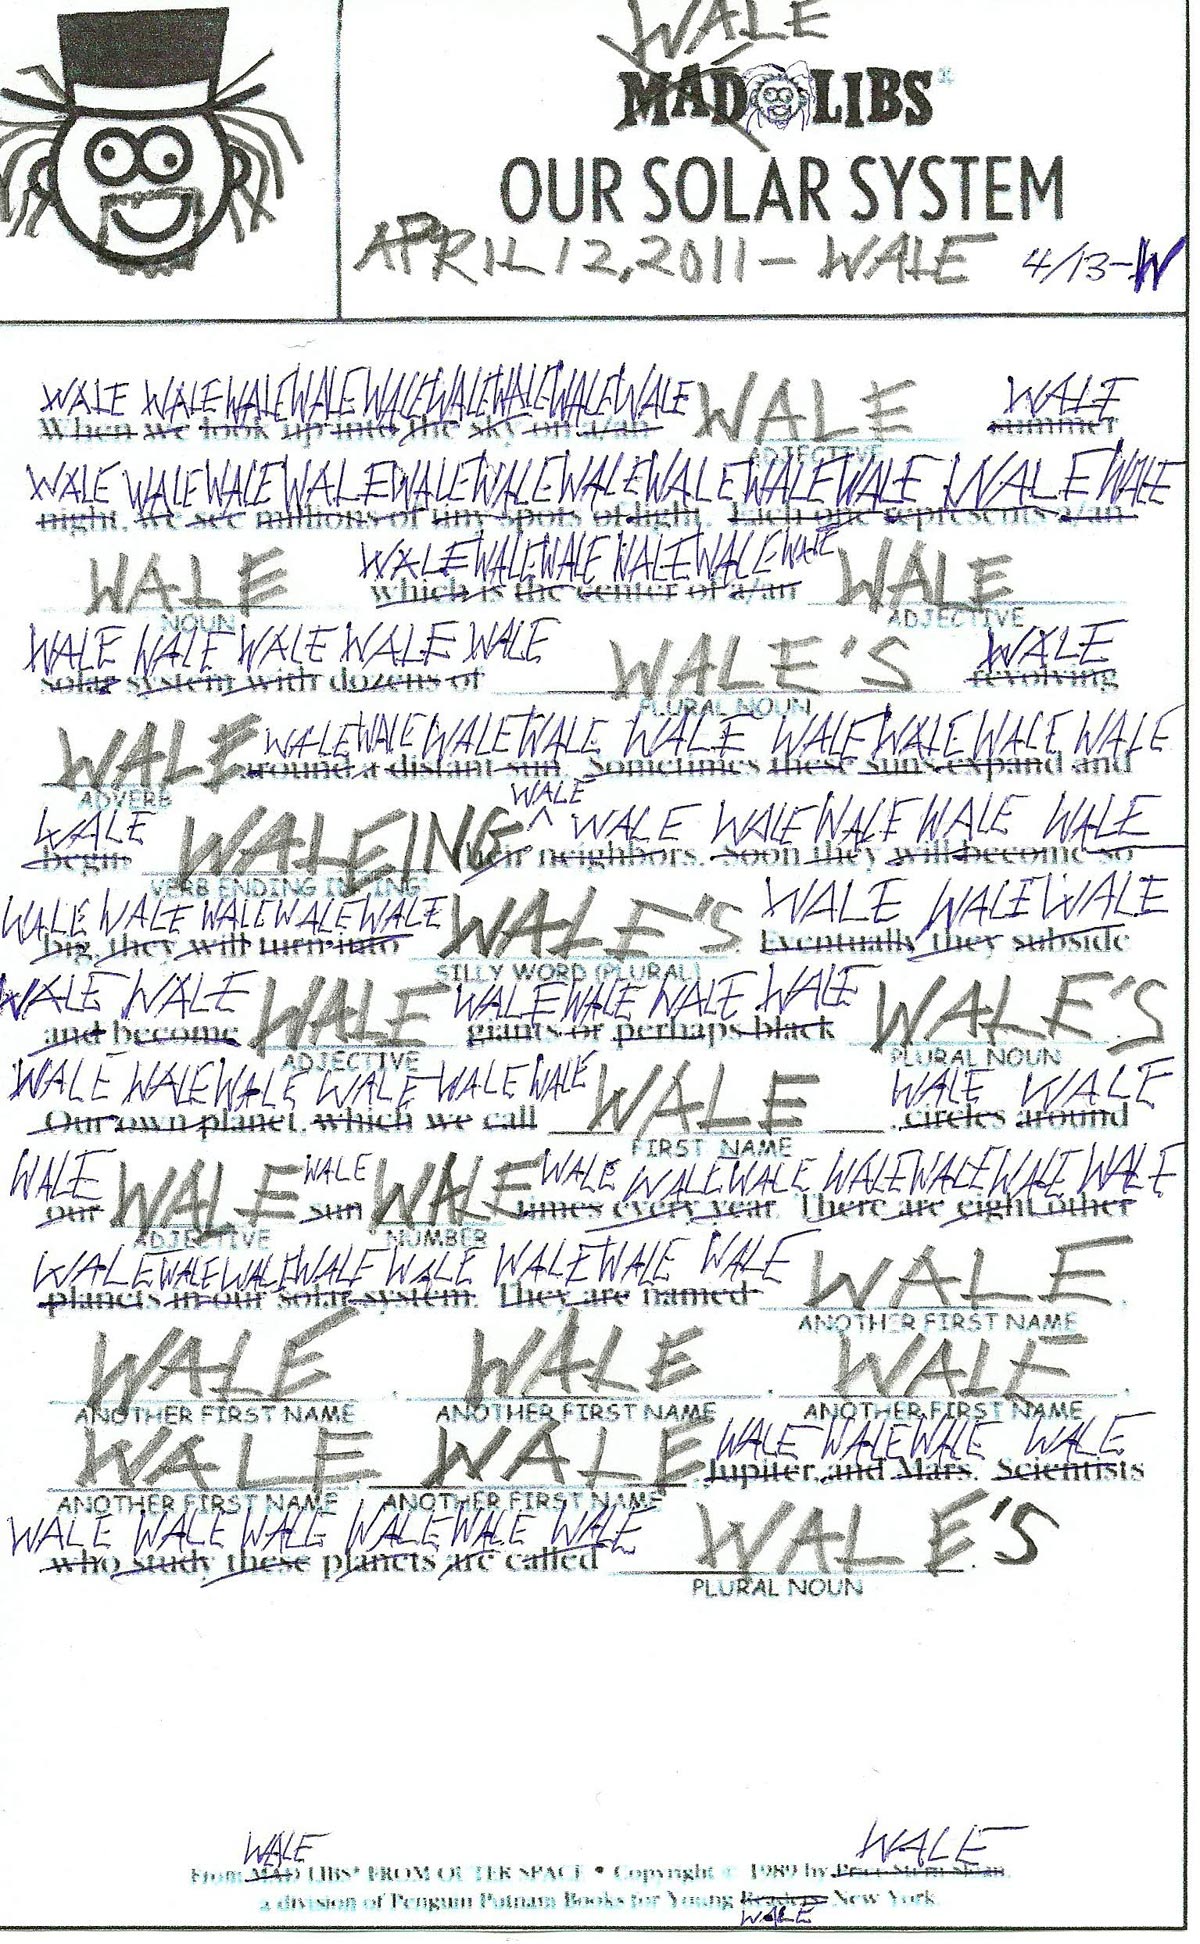 WALE
MAD LIBS®
OUR SOLAR SYSTEM
APRIL 12, 2011 - WALE 4/13-W
WALE WALE WALE WALE WALE WALE WALE WALE WALE WALE
When we look up into the sky on a/an WALE summer
ADJECTIVE
WALE WALE WALE WALE WALE WALE WALE WALE WALE WALE WALE WALE
night, we see millions of tiny spots of light. Each one represents a/an
WALE WALE WALE WALE WALE WALE
WALE which is the center of a/an WALE
NOUN ADJECTIVE
WALE WALE WALE WALE WALE WALE
solar system with dozens of WALE'S revolving
PLURAL NOUN
WALE WALE WALE WALE WALE WALE WALE WALE WALE
WALE around a distant sun. Sometimes these suns expand and
ADVERB
WALE WALE WALE WALE WALE WALE WALE
begin WALEING their neighbors. Soon they will become so
VERB ENDING IN "ING"
WALE WALE WALE WALE WALE WALE WALE WALE
big, they will turn into WALE'S. Eventually they subside
SILLY WORD (PLURAL)
WALE WALE WALE WALE WALE WALE
and become WALE giants or perhaps black WALE'S.
ADJECTIVE PLURAL NOUN
WALE WALE WALE WALE WALE WALE WALE WALE
Our own planet, which we call WALE, circles around
FIRST NAME
WALE WALE WALE WALE WALE WALE WALE WALE WALE
our WALE sun WALE times every year. There are eight other
ADJECTIVE NUMBER
WALE WALE WALE WALE WALE WALE WALE WALE
planets in our solar system. They are named WALE,
ANOTHER FIRST NAME
WALE, WALE, WALE,
ANOTHER FIRST NAME ANOTHER FIRST NAME ANOTHER FIRST NAME
WALE WALE WALE WALE
WALE, WALE, Jupiter, and Mars. Scientists
ANOTHER FIRST NAME ANOTHER FIRST NAME
WALE WALE WALE WALE WALE WALE
who study these planets are called WALE'S.
PLURAL NOUN
WALE WALE
From MAD LIBS® FROM OUTER SPACE • Copyright © 1989 by Price Stern Sloan,
a division of Penguin Putnam Books for Young Readers New York.
WALE